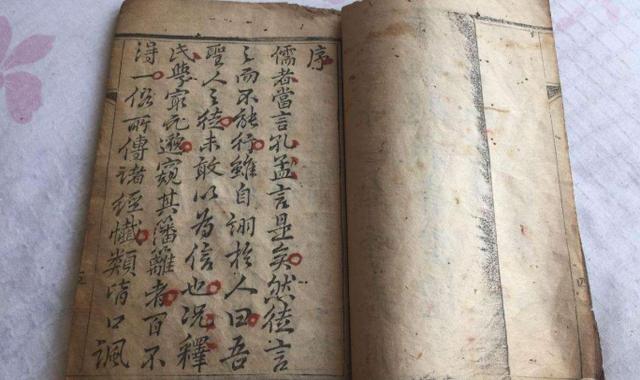 序
儒者當言孔孟言是矣然徒言
之而不能行雖自詡於人曰吾
聖人之徒未敢以為信也況釋
氏學窮元邈窺其藩籬者百不
得一俗所傳諸經懺類皆口諷